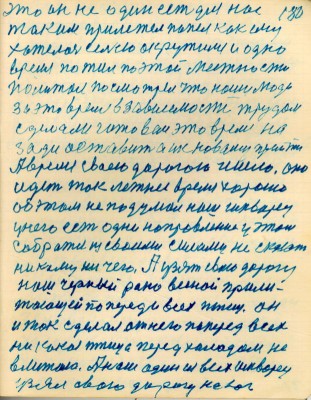 это он не один сет для нас 180
таким прилетел попел как ему
хателось семью окрутили и одно
время потил поэтой местности
политал посмотрел что наши люди
за это время в зависемости трудом
сделали чатов эт это время на
зади оставить а к новым прийти
А время своею дорогою ишло. оно
идет так летнее время хорошо
об этом не подумал наш скварец
у него ест одно направление у этом
собрати из своими силами не скажет
никому ни чего. А узят свою дорогу
наш черный рано весной приле-
тающей попереди всех птиц. он
и так сделал от него поперед всех
ни какая птица перед холодом не
влитала. А наш один из всех скварец
взял свою дорогу не